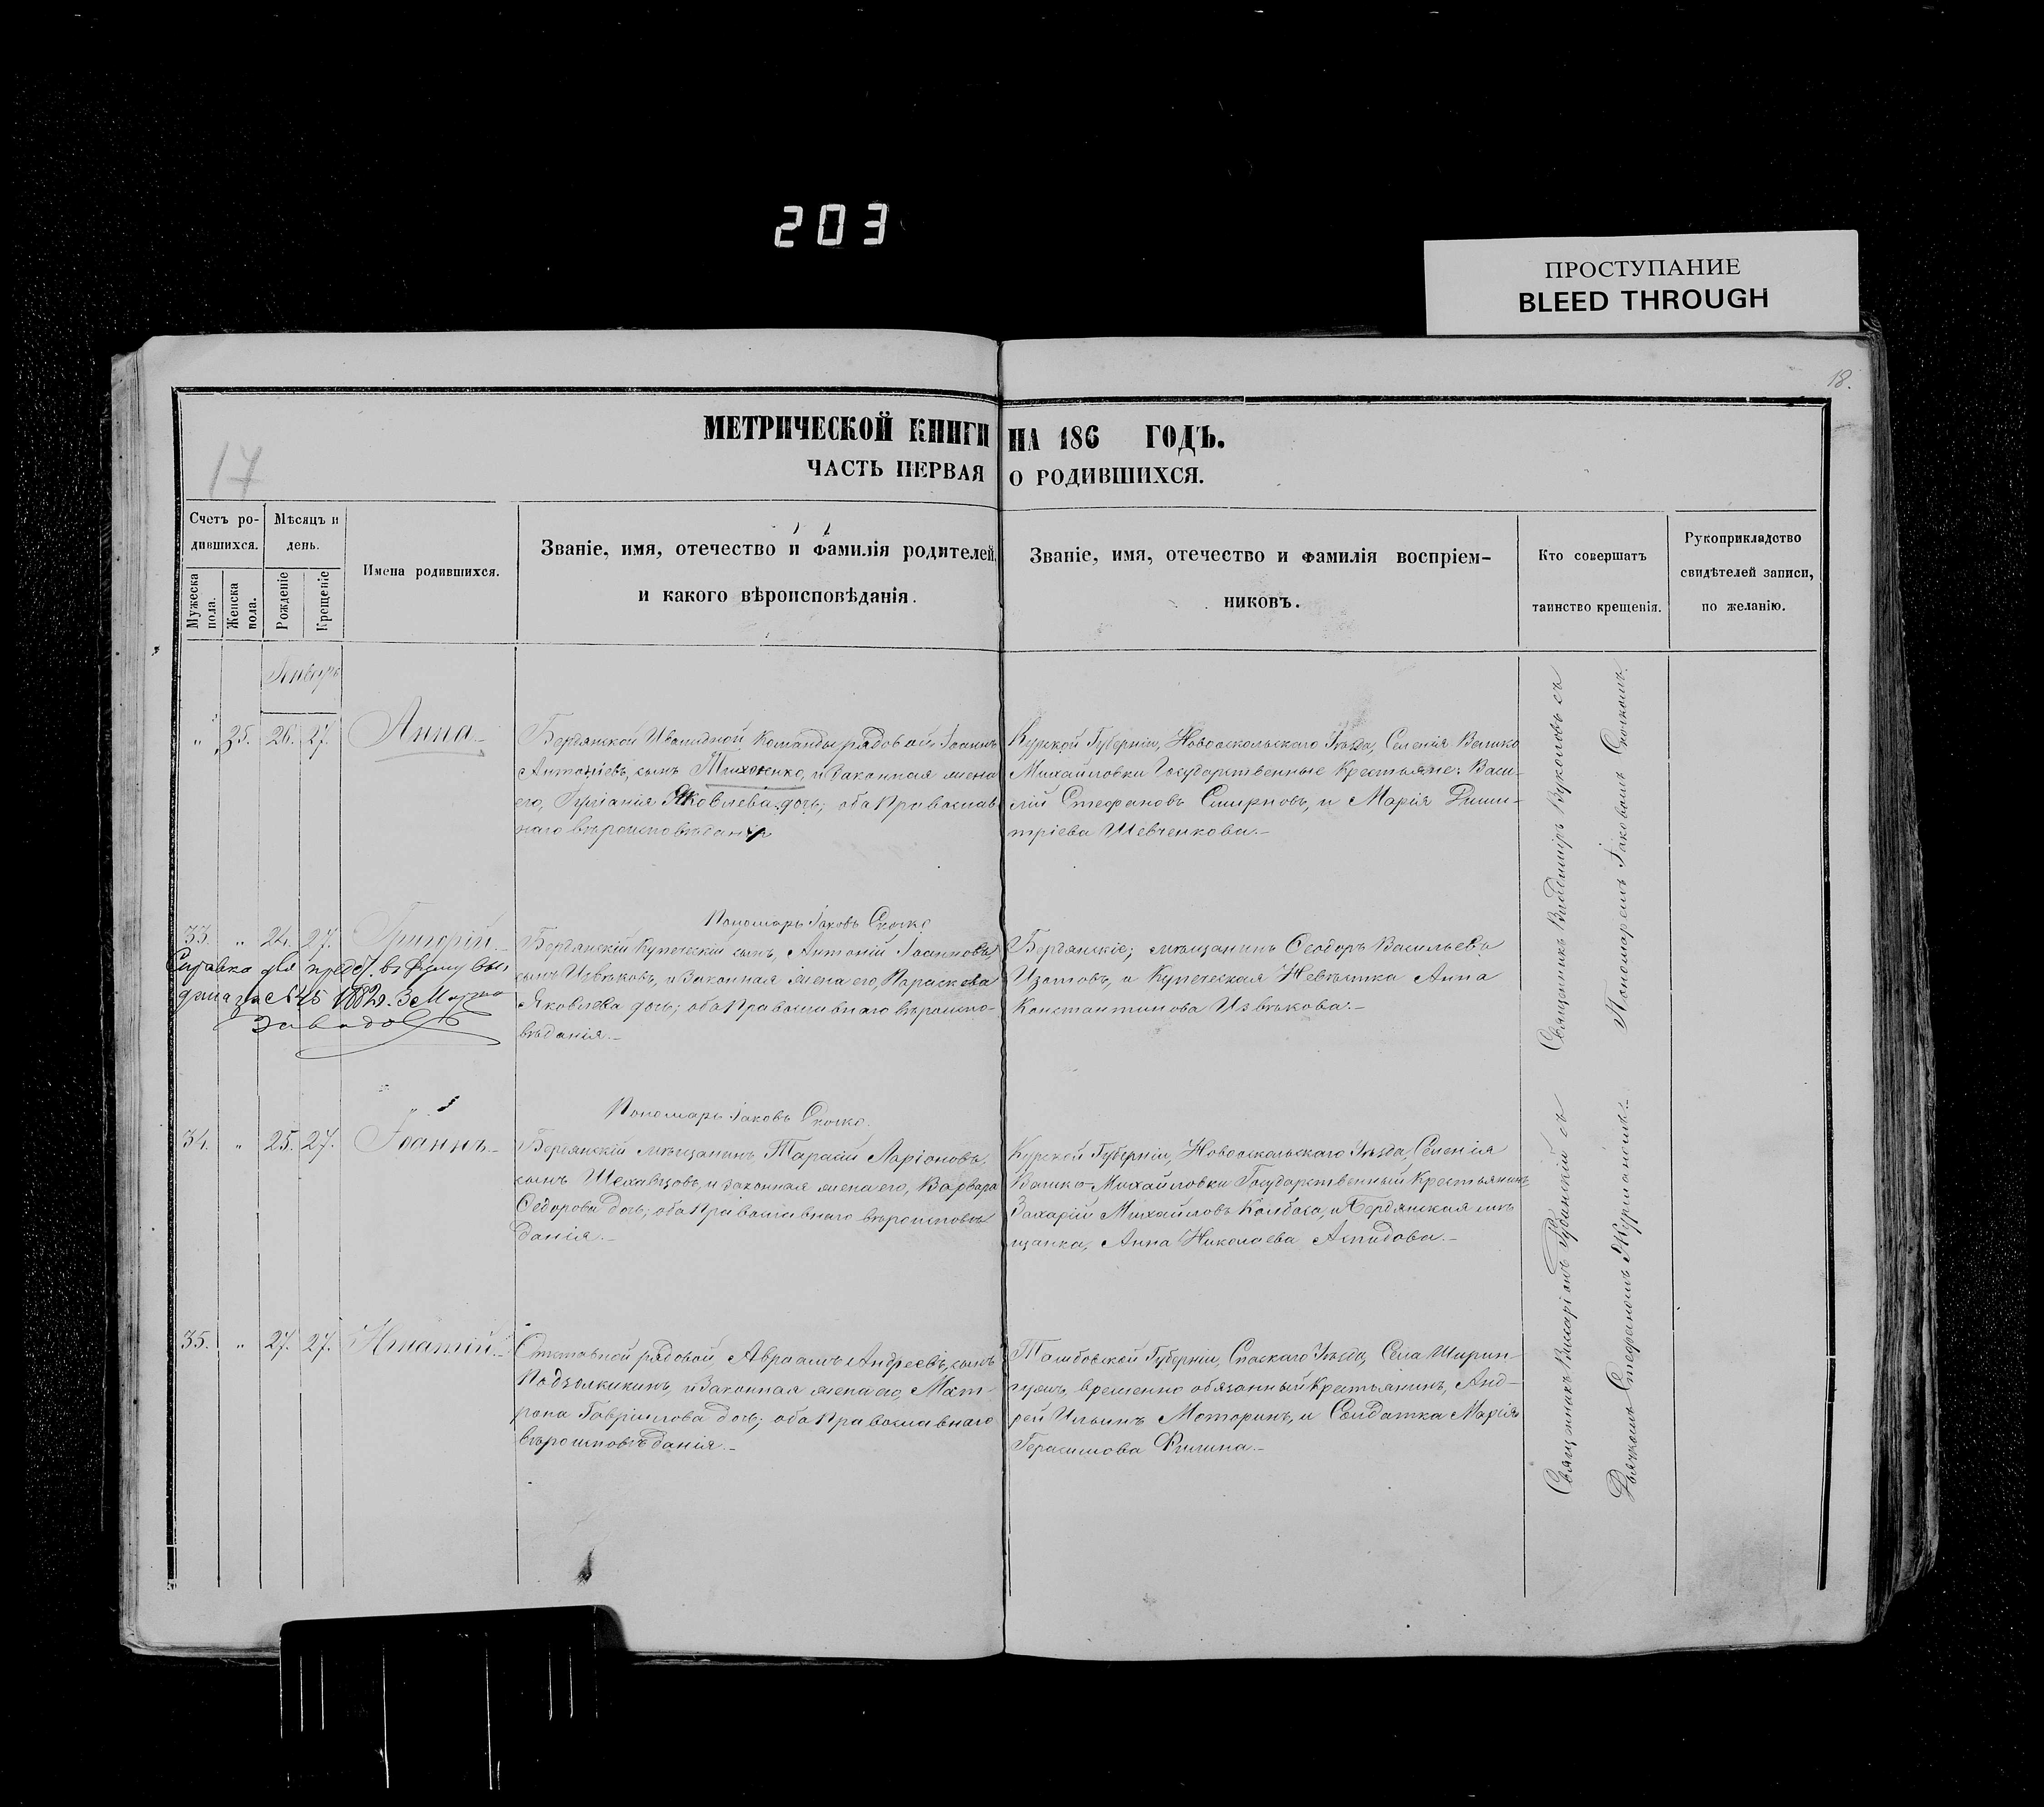 203
ПРОСТУПАНИЕ
BLEED THROUGH
18.
17
МЕТРИЧЕСКОЙ КНИГИ НА 186 ГОДЪ.
ЧАСТЬ ПЕРВАЯ О РОДИВШИХСЯ.
Счетъ ро-
дившихся.
Мужеска пола.
Женска пола.
Мѣсяцъ и
день.
Рожденіе
Крещеніе
Имена родившихся.
Званіе, имя, отечество и фамилія родителей,
и какого вѣроисповѣданія.
Званіе, имя, отечество и фамилія воспріем-
никовъ.
Кто совершатъ
таинство крещенія.
Рукоприкладство
свидѣтелей записи,
по желанію.
Январь
" 35. 26. 27. Анна
Бердянской Инвалидной Команды рядовой Іоаннъ
Антоніевъ сынъ Михоненко, и законная жена
его, Яковлева дочь; оба Православ
наго вѣроисповѣданія
Курской Губерніи, Новооскольскаго Уѣзда, Селенія Велико
Михайловки Государственные Крестьяне: Васи-
лій Стефановъ Смирновъ, и Марія Дими-
тріева Шевченкова.-
Пономарь Іаковъ
33. " 24. 27. Григорій.
Бердянскій Купеческій сынъ, Антоній Іоанновъ
сынъ Извѣковъ, и Законная жена его, Параскева
Яковлева дочь; оба Православнаго вѣроиспо-
вѣданія.-
Справка для
№ 45 1882
Бердянскіе; мѣщанинъ Ѳеодоръ Васильевъ
Изотовъ, и Купеческая Невѣстка Анна
Константинова Извѣкова.-
Пономарь Іаковъ
34. " 25. 27. Іоаннъ
Бердянскій мѣщанинъ Тарасій Ларіоновъ
сынъ Шехавцовъ, и законная жена его, Варвара
Ѳедорова дочь; оба Православнаго вѣроисповѣ
данія.-
Курской Губерніи, Новооскольскаго Уѣзда, Селенія
Велико-Михайловки Государственный Крестьянинъ
Захарій Михайловъ Колбаса, и Бердянская мѣ
щанка, Анна Николаева Аспидова.-
35. " 27. 27. Игнатій.
Отставной рядовой Авраамъ Андреевъ сынъ
и Законная жена его, Мат-
рона Гавріилова дочь; оба Православнаго
вѣроисповѣданія.-
Тамбовской Губерніи, Спаскаго Уѣзда, Села Ширин-
гушъ, временно обязанный Крестьянинъ, Анд-
рей Ильинъ Моторинъ, и Солдатка Марія
Герасимова Филина.-
Священникъ Владиміръ Вуколовъ съ
Пономаремъ Іаковомъ
Священникъ Виссаріонъ Рубанскій съ
Дьячкомъ Стефаномъ